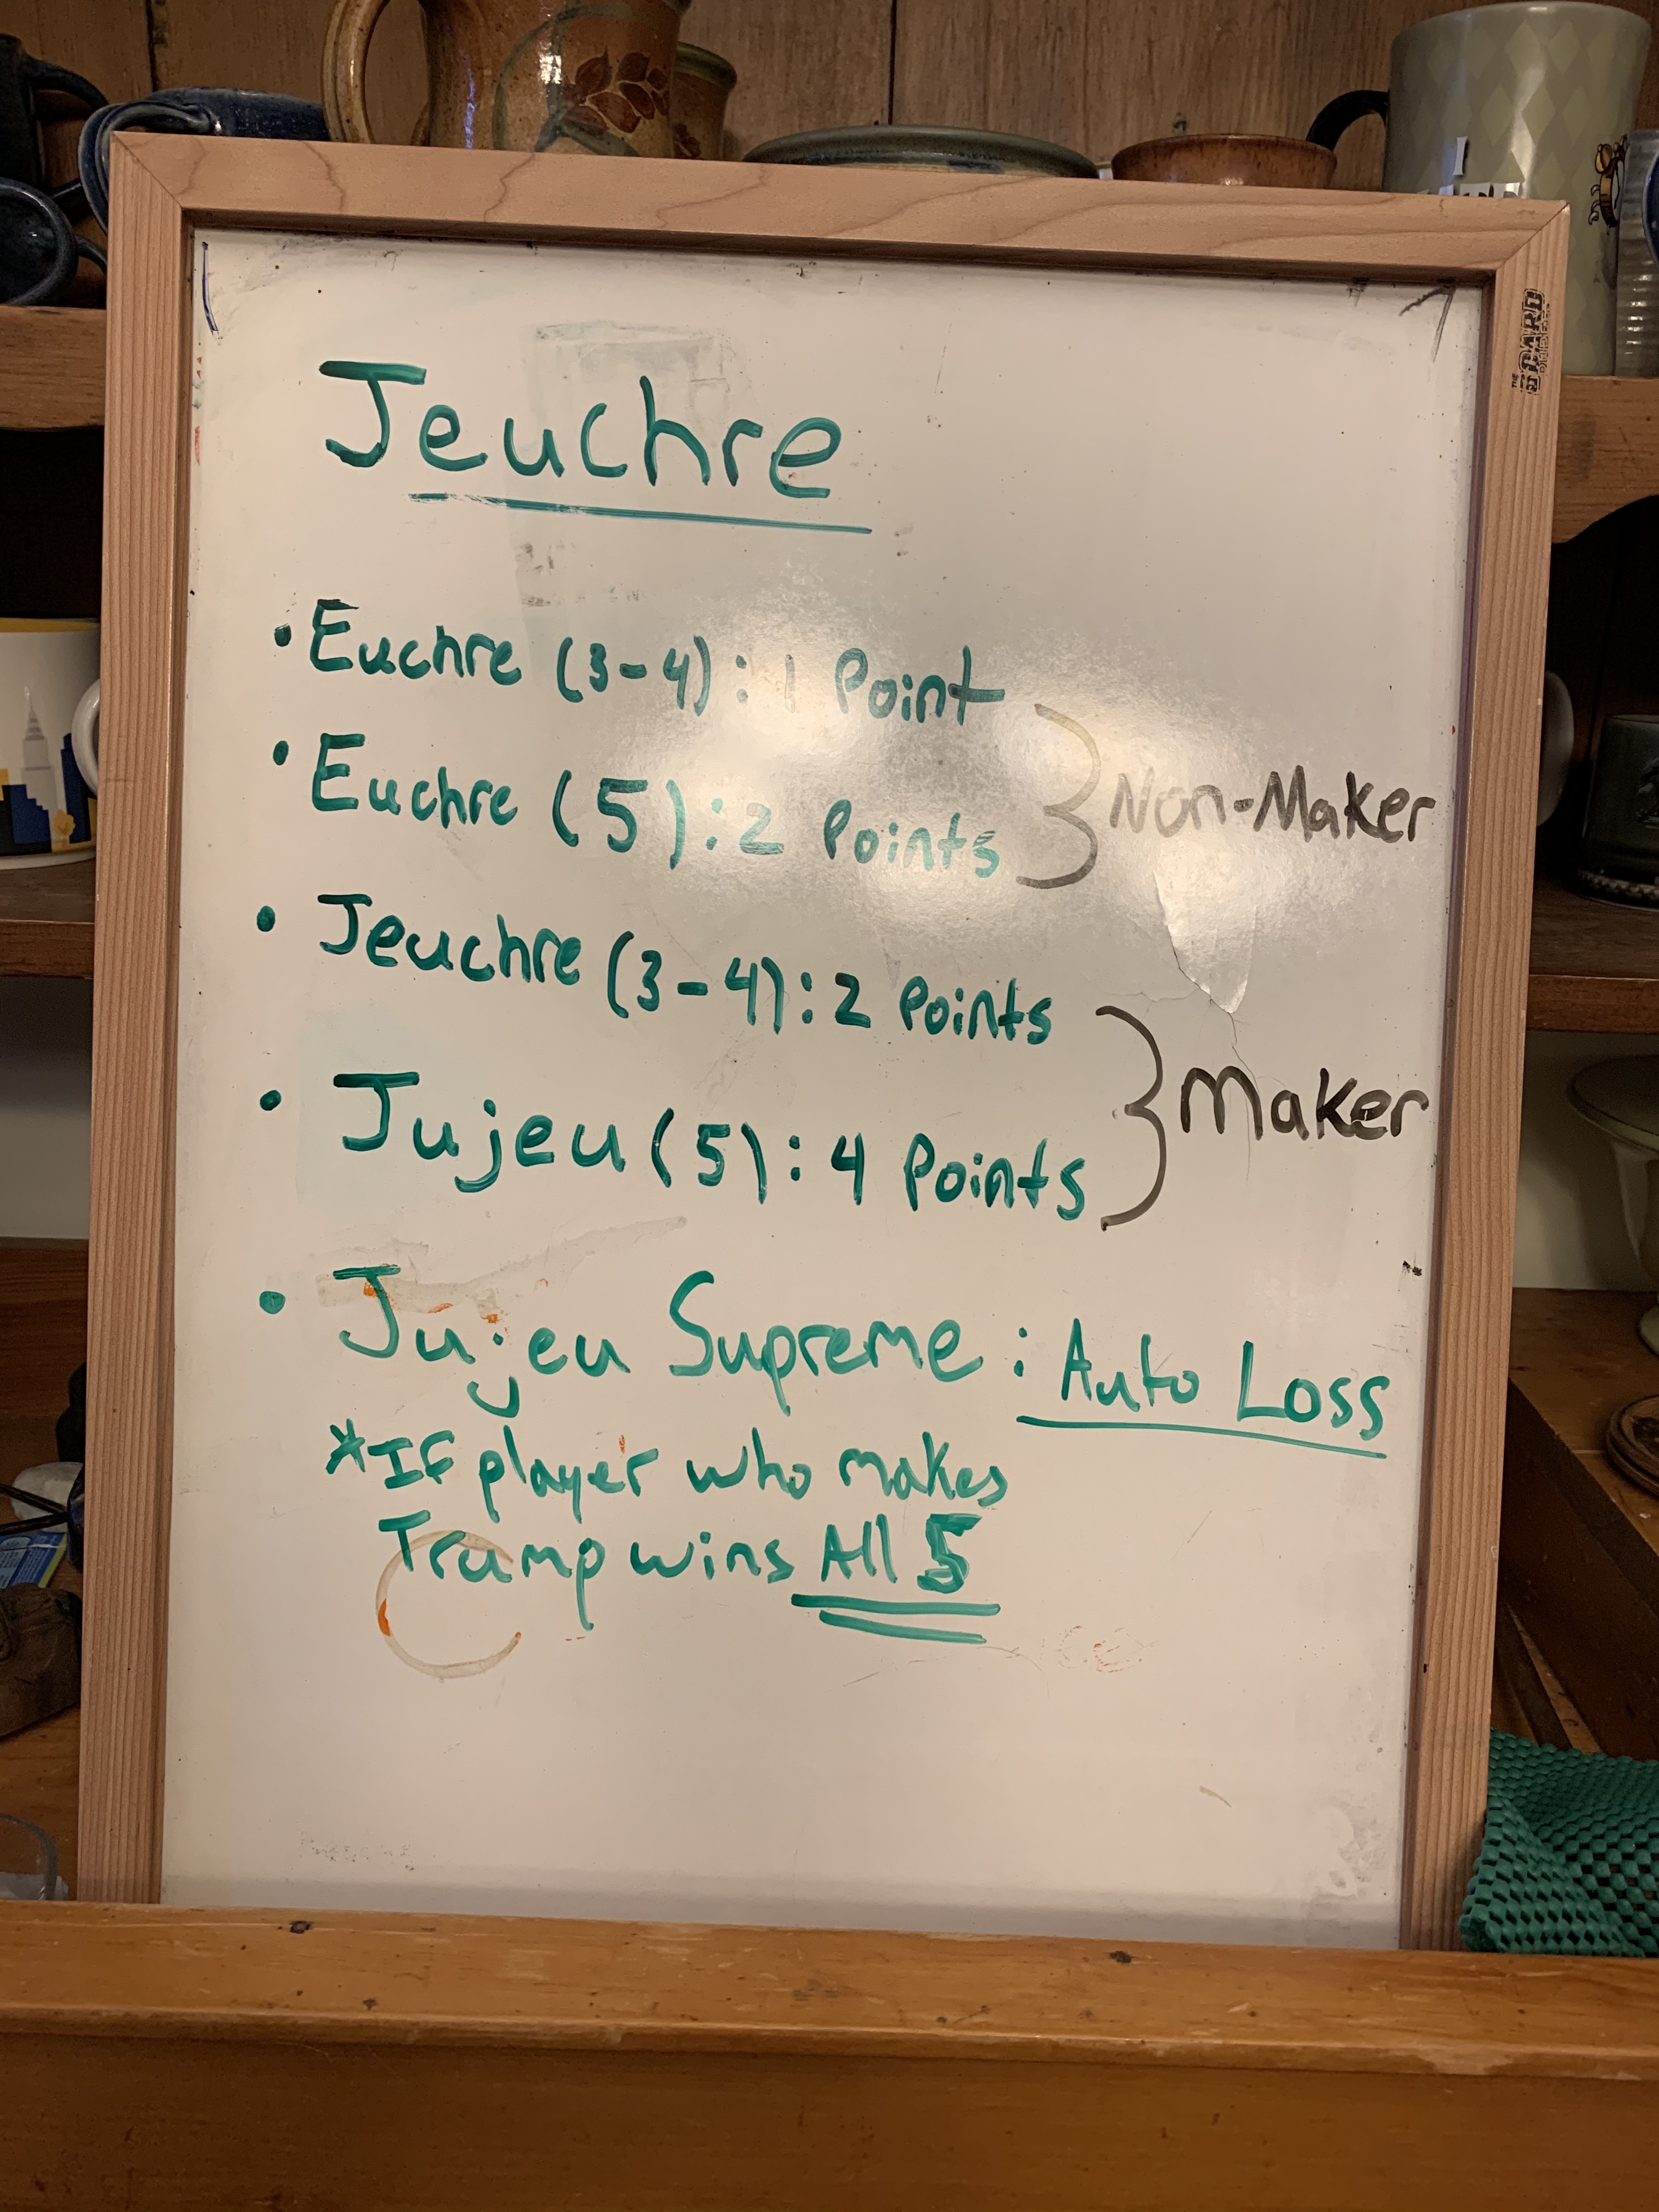 Jeuchre
• Euchre (3-4): 1 Point
• Euchre (5): 2 Points
Non-Maker
• Jeuchre (3-4): 2 Points
• Jujeu (5): 4 Points
Maker
• Jujeu Supreme: Auto Loss
*If player who makes
Trump wins All 5
THE BOARD